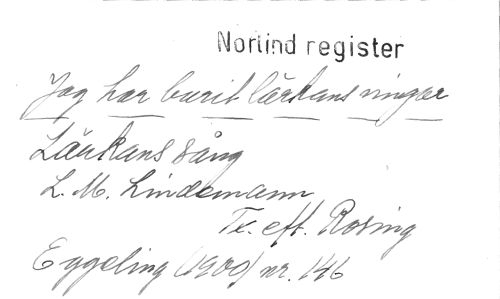 Norlind register
Jag har burit lärkans vingar
Lärkans sång
L. M. Lindemann
Tx. eft. Rosing
Eggeling (1900) nr. 146